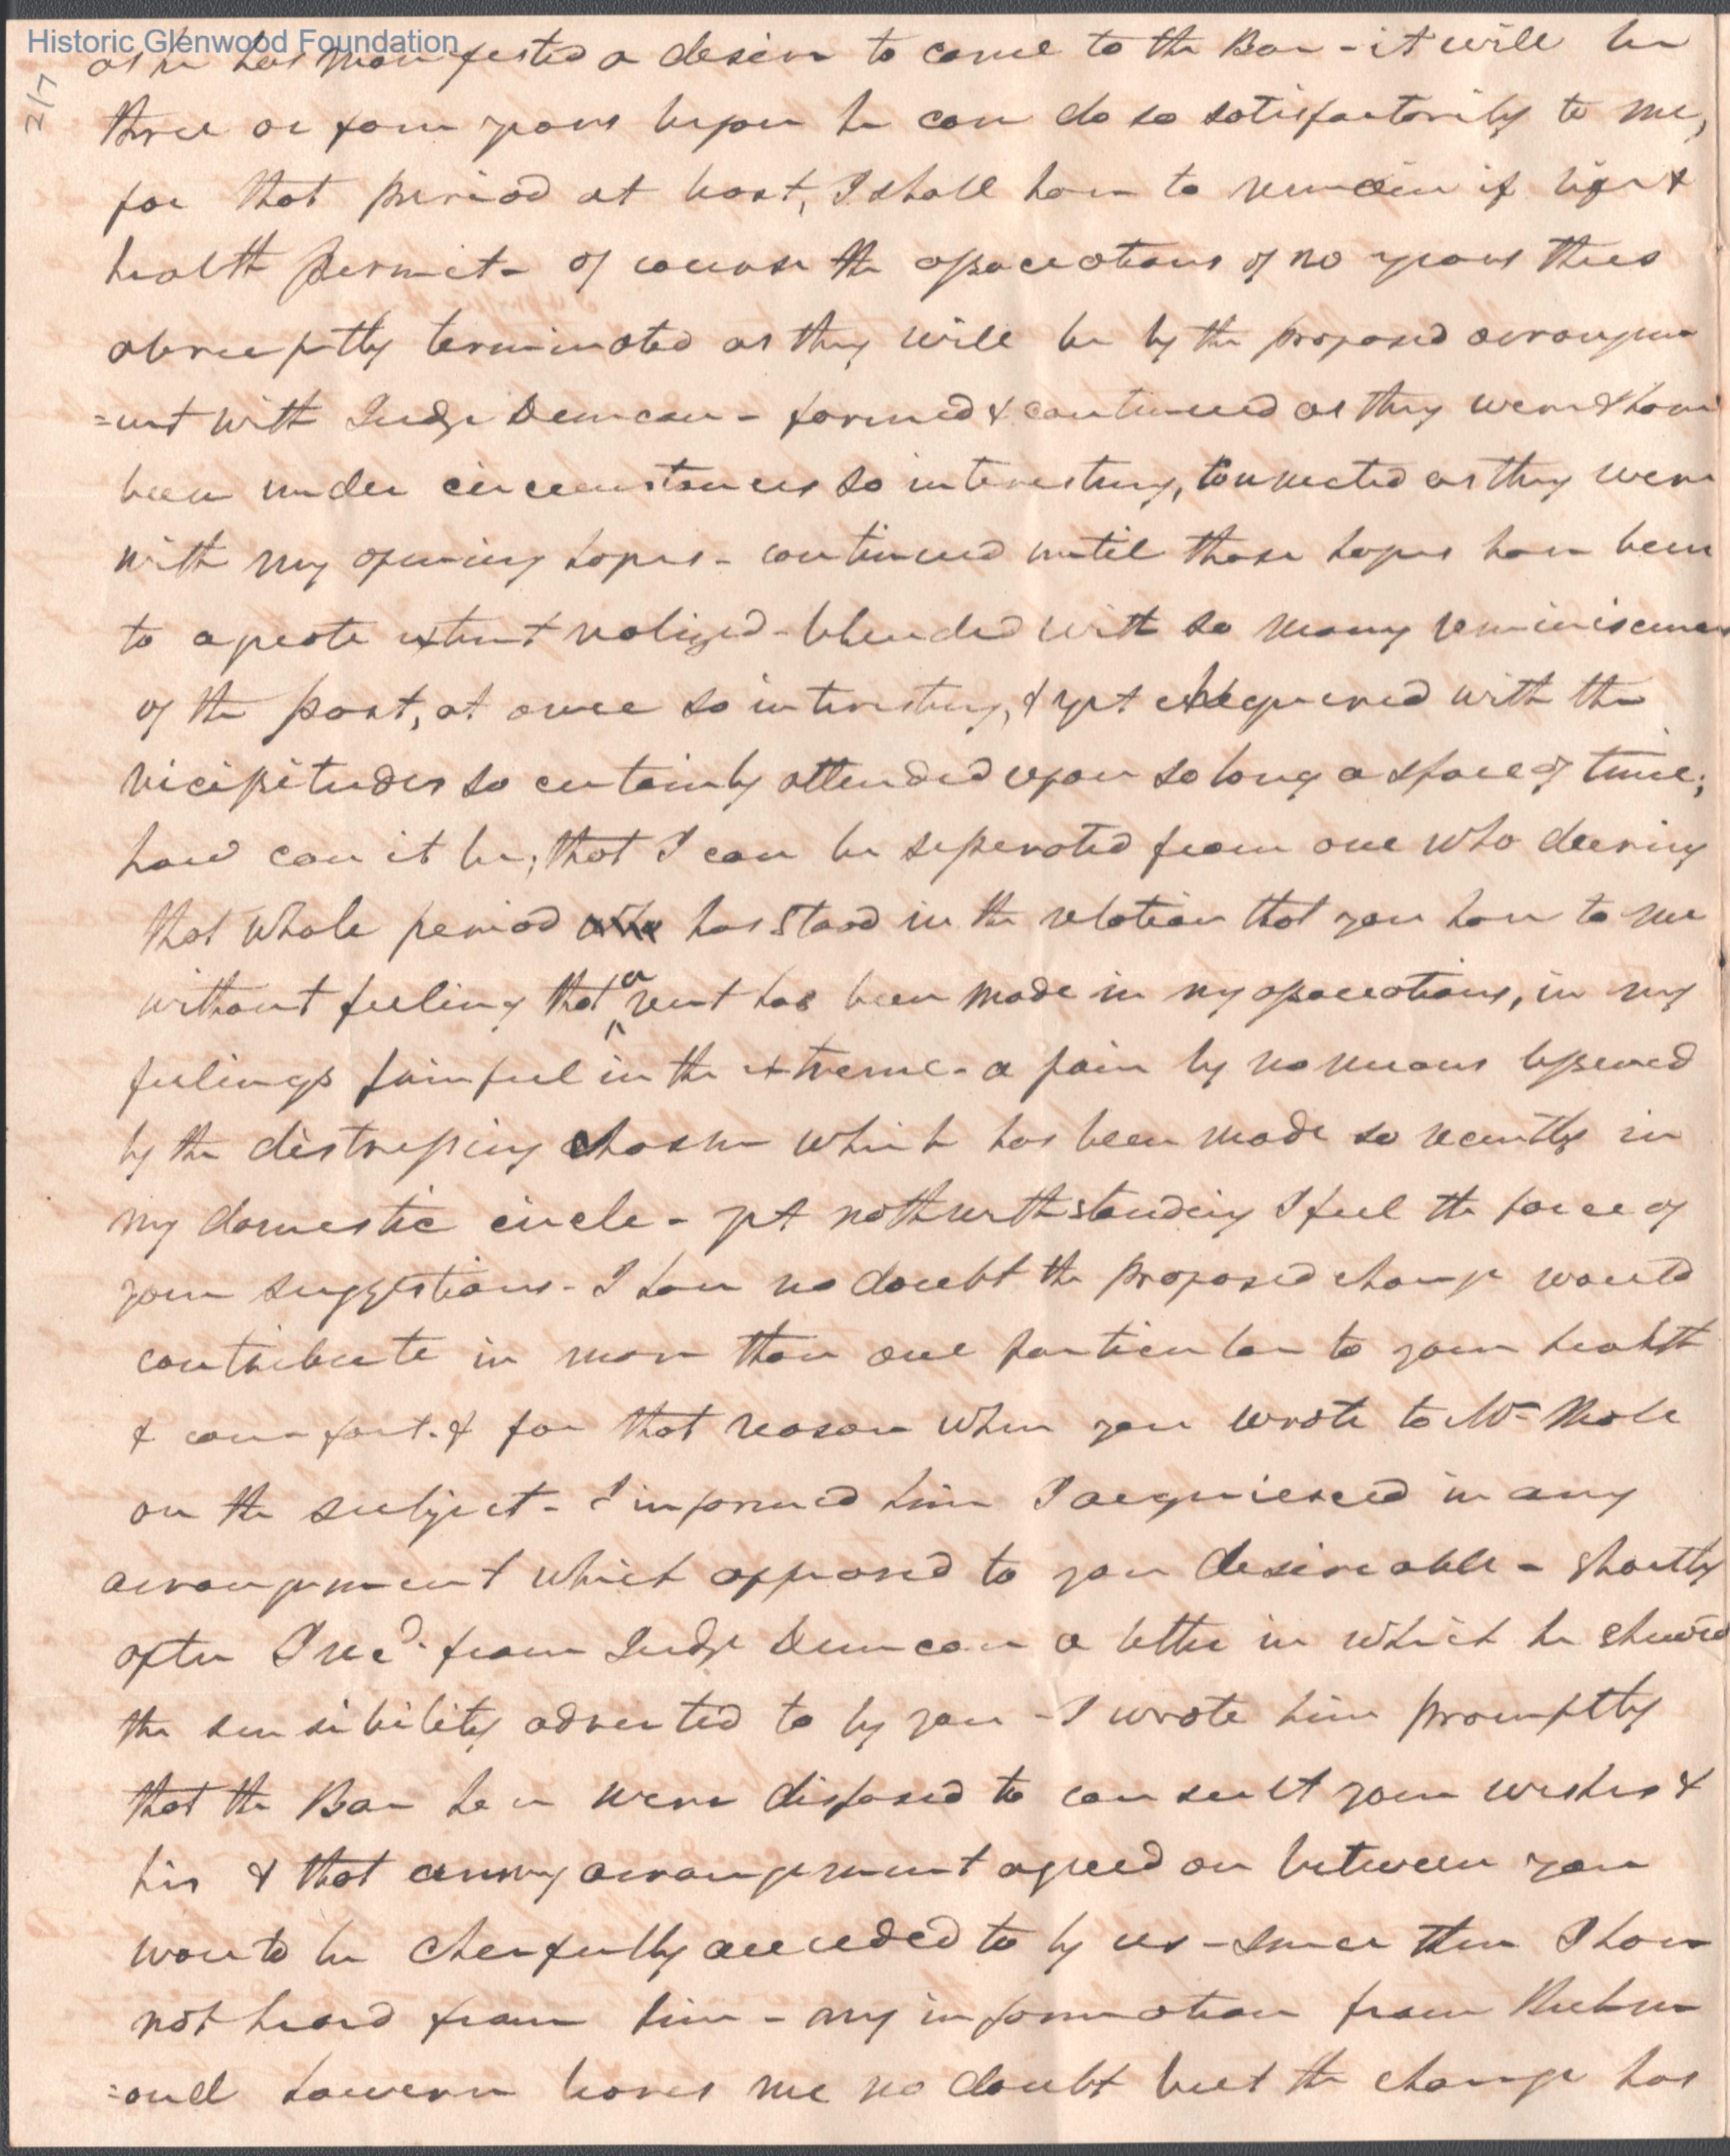 Historic Glenwood Foundation
2/7
as he has manifested a desire to come to the Bar - it will be
three or four years before he can do so satisfactorily to me,
for that period at least, I shall have to remain if life &
health permit - of course the associations of 20 years thus
abruptly terminated as they will be by the proposed arrangem
=ent with Judge Duncan - formed & continued as they were & have
been under circumstances so interesting, connected as they were
with my opening hopes - continued until those hopes have been
to a greate extent realized - blended with so many reminiscences
of the past, at once so interesting, & yet chequered with the
vicissitudes so certainly attended upon so long a space of time;
how can it be, that I can be seperated from one who during
that whole period who has stood in the relation that you have to me
without feeling that a rent has been made in my associations, in my
feelings painful in the extreme - a pain by no means lessened
by the distressing chasm which has been made so recently in
my domestic circle - yet nothwithstanding I feel the force of
your suggestions - I have no doubt the proposed change would
contribute in more than one particular to your health
& comfort. & for that reason when you wrote to Mr
on the subject - I informed him I acquiesced in any
arrangement which appeared to you desireable - shortly
after I recd. from Judge Duncan a letter in which he shewed
the sensibility adverted to by you - I wrote him promptly
that the Bar here were disposed to consult your wishes &
his & that any arrangement agreed on between you
would be cheerfully acceded to by us - since then I have
not heard from him - my information from Richm
=ond however leaves me no doubt but the change has